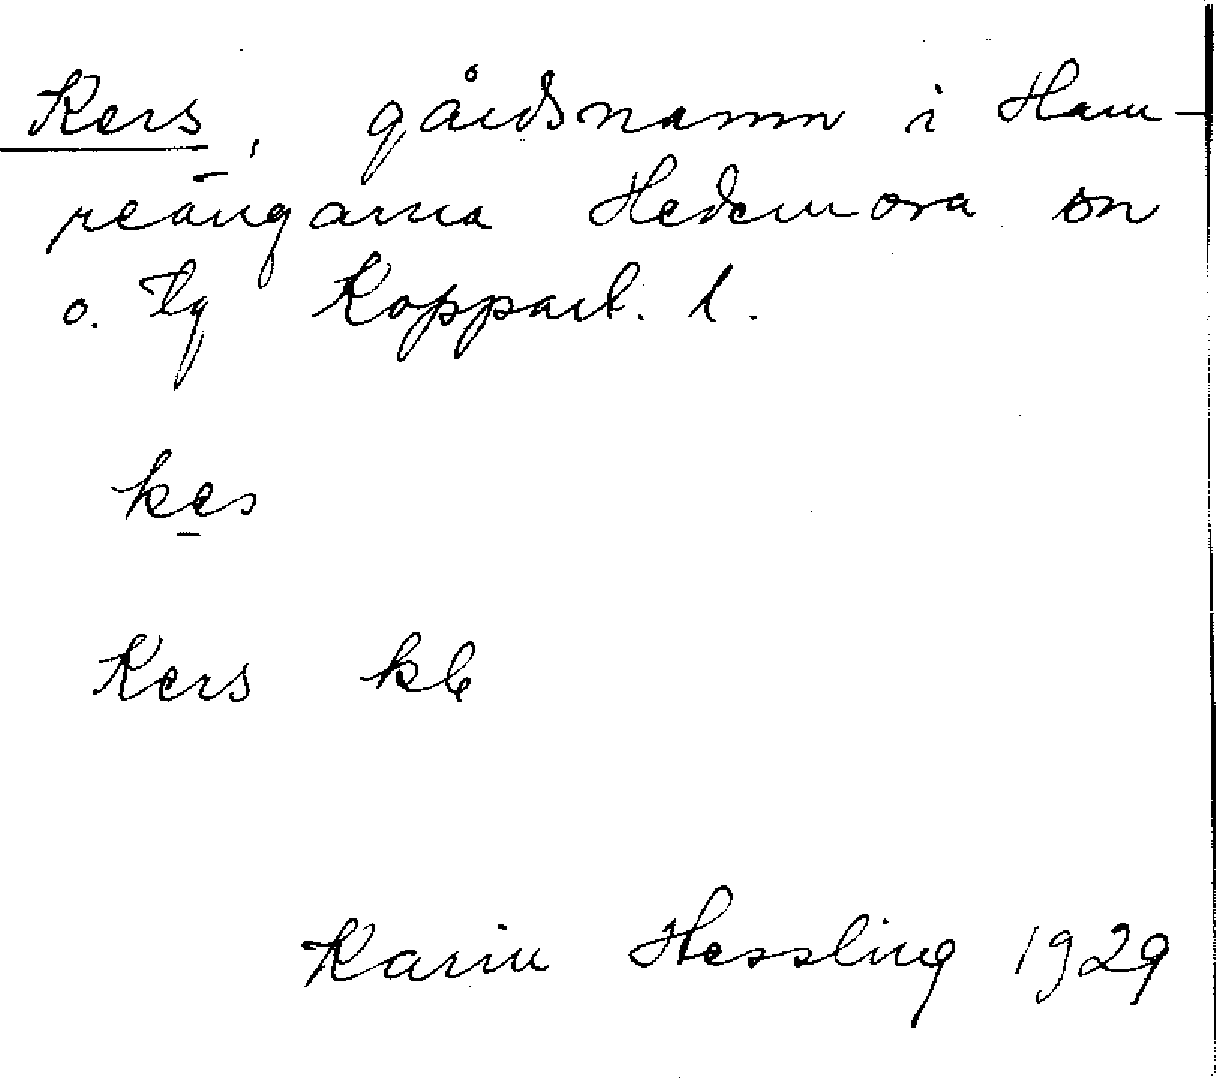 Kers, gårdsnamn i Ham-
reängarna Hedemora sn
o. tg Kopparb. l.
kes
Kers kb
Karin Hessling 1929